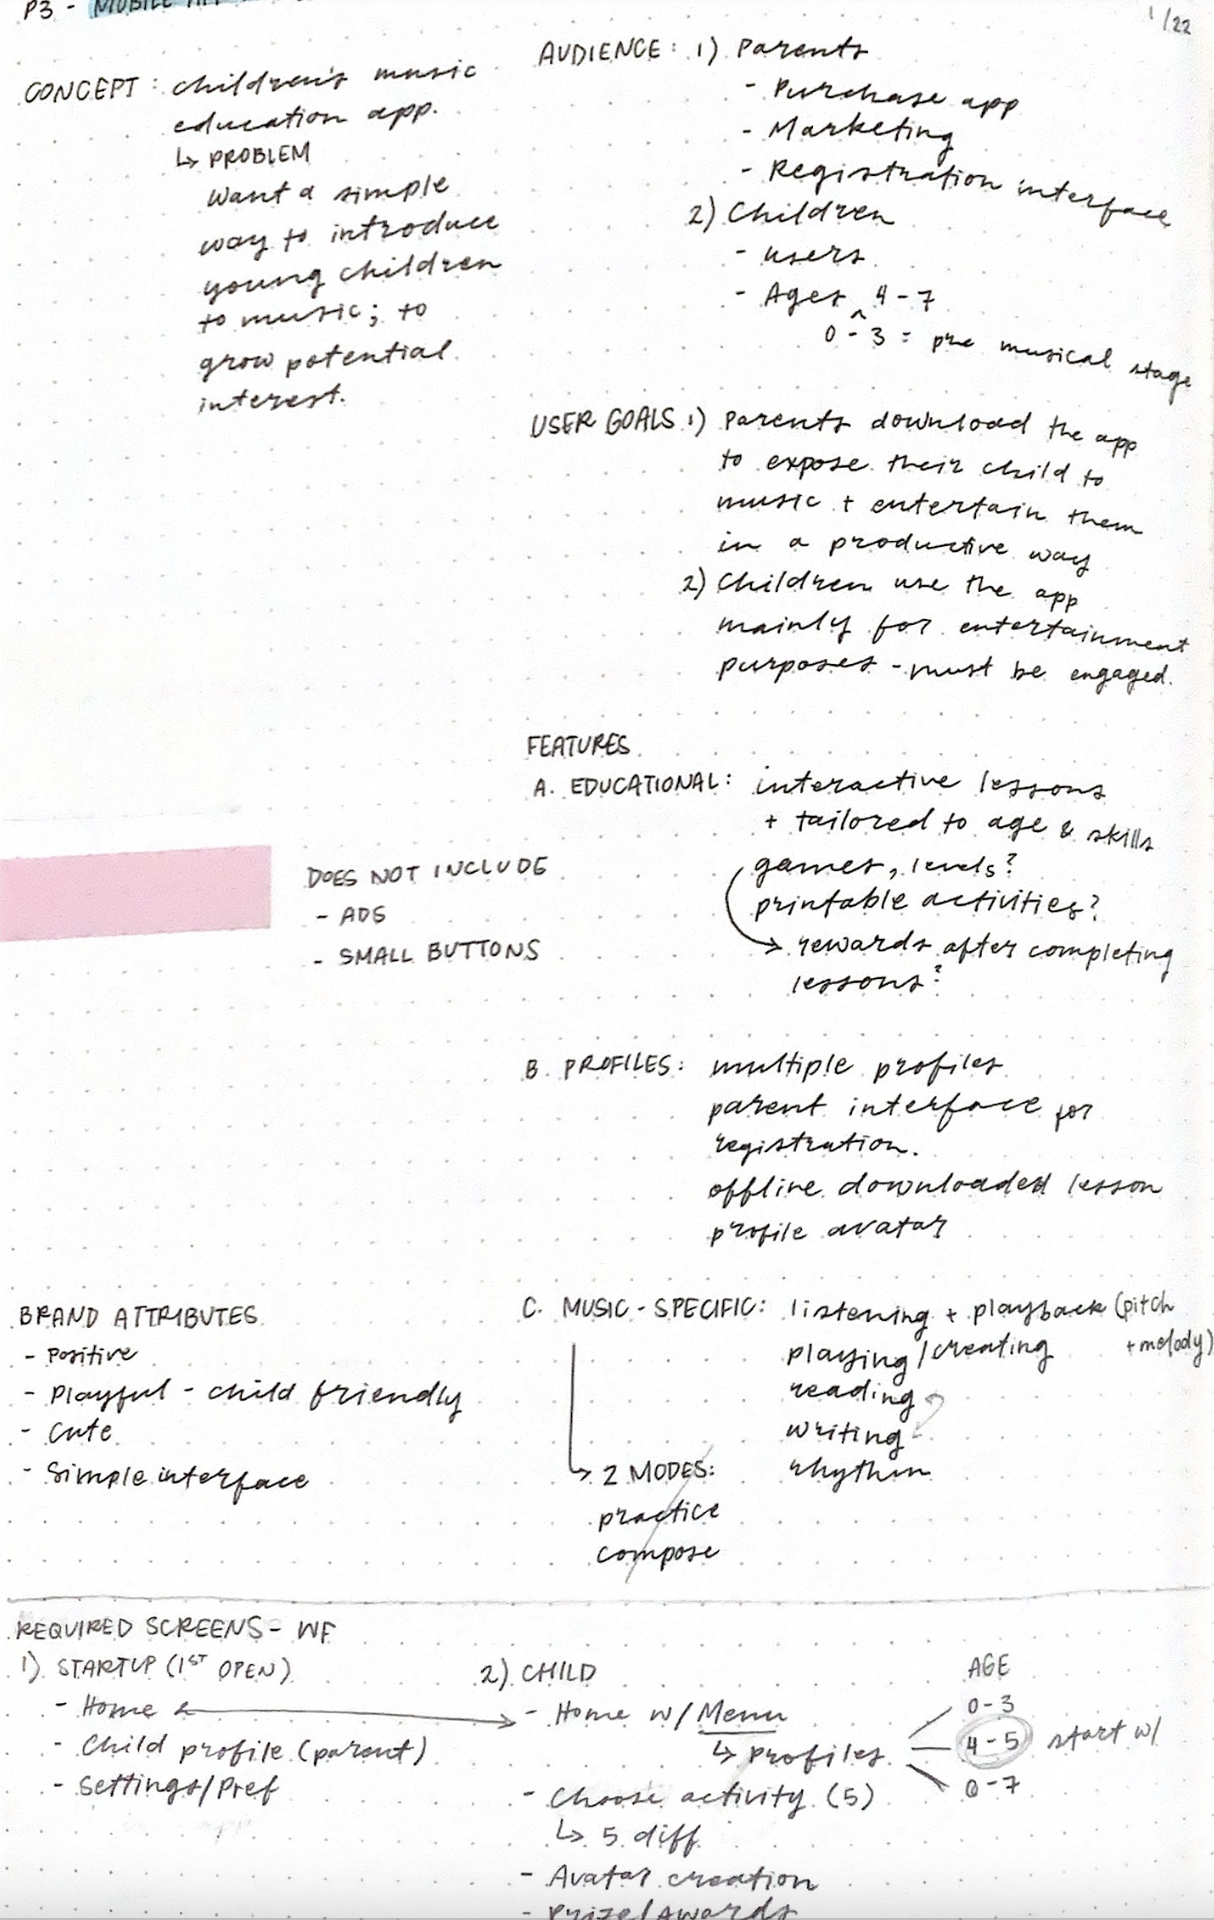 P3 - MOBILE APP
1/22
CONCEPT: children's music
education app.
↳ PROBLEM
Want a simple
way to introduce
young children
to music; to
grow potential
interest.
AUDIENCE: 1) Parents
- Purchase app
- Marketing
- Registration interface
2) Children
- users
- Ages 4-7
^
0-3 = pre musical stage
USER GOALS 1) Parents download the app
to expose their child to
music + entertain them
in a productive way
2) Children use the app
mainly for entertainment
purposes - must be engaged.
FEATURES
A. EDUCATIONAL: interactive lessons
+ tailored to age & skills
games, levels?
printable activities?
→ rewards after completing
lessons?
DOES NOT INCLUDE
- ADS
- SMALL BUTTONS
B. PROFILES: multiple profiles
parent interface for
registration.
offline downloaded lesson
profile avatar
BRAND ATTRIBUTES
- Positive
- Playful - child friendly
- Cute
- Simple interface
C. MUSIC-SPECIFIC: listening + playback (pitch
+ melody)
playing/creating
reading
writing
rhythm
↳ 2 MODES:
practice
compose
REQUIRED SCREENS - WF
1) STARTUP (1ST OPEN)
- Home
- Child profile (parent)
- Settings/Pref
2) CHILD
- Home w/ Menu
↳ Profiles
- Choose activity (5)
↳ 5 diff
- Avatar creation
- Prize/Awards
AGE
0-3
4-5 start w/
6-7